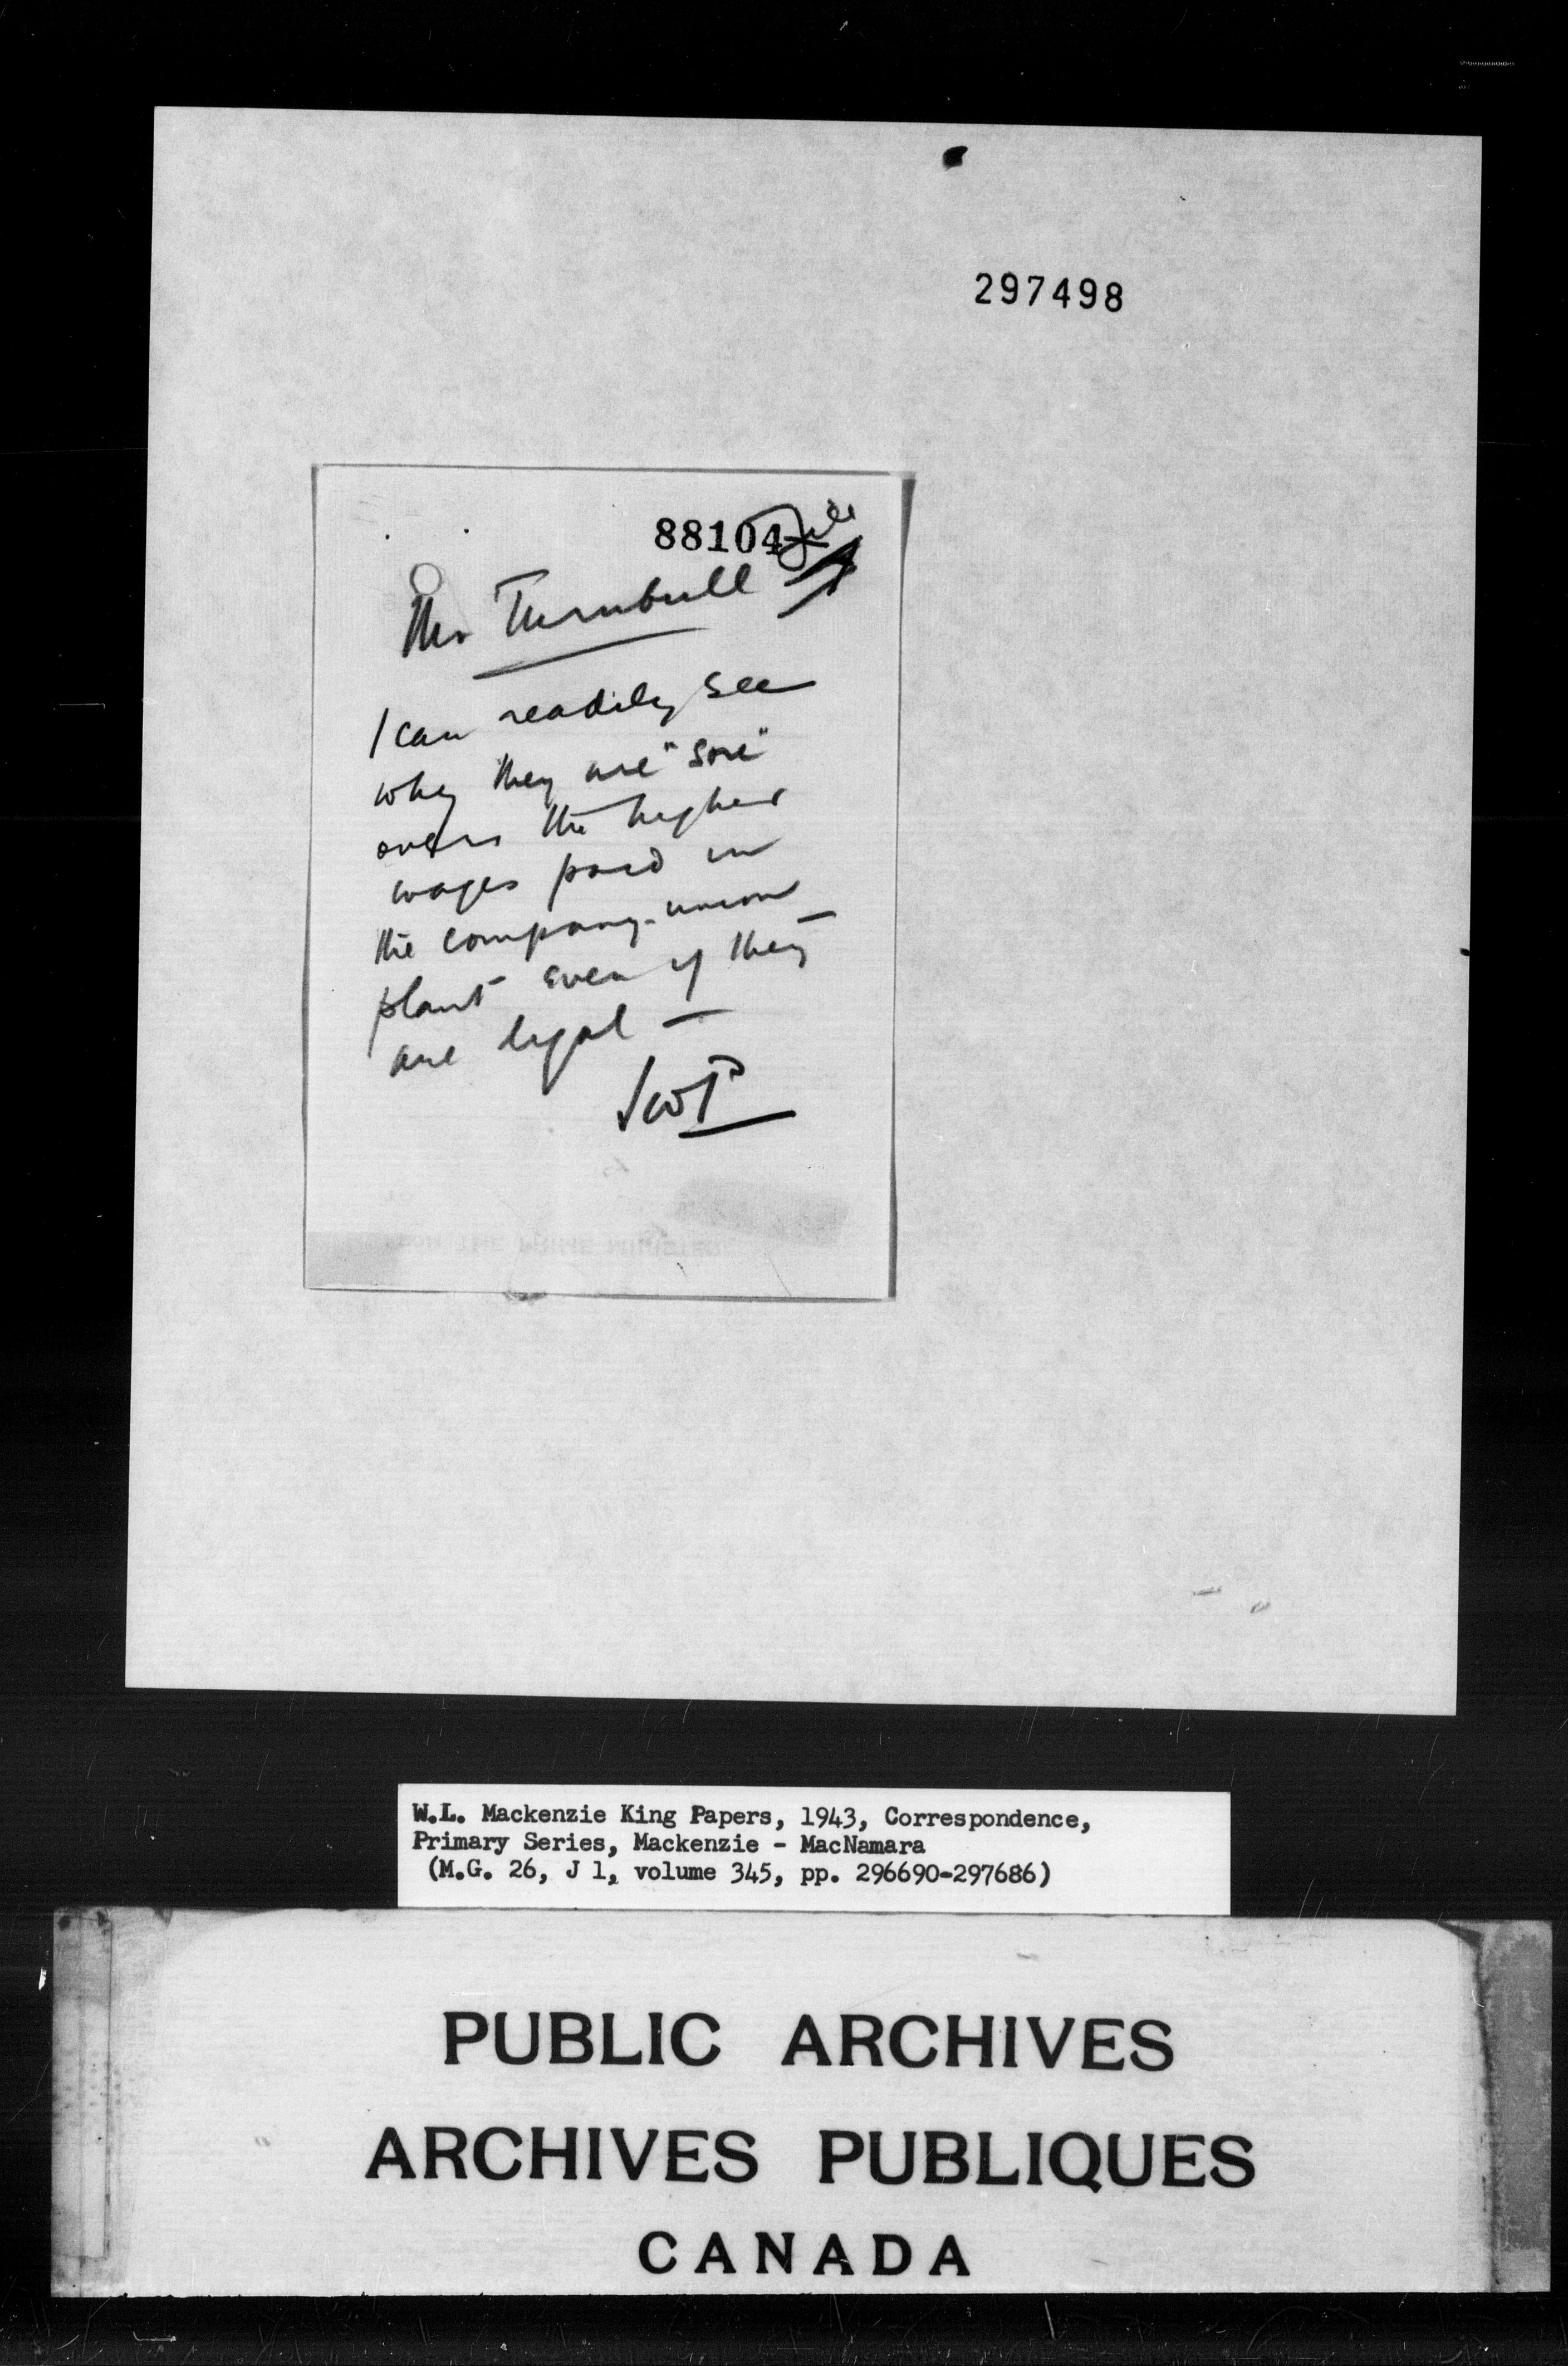 297498
88104
File
Mr Turnbull
I can readily see
why they are "sore"
over the higher
wages paid in
the company-union
plant even if they
are legal —
JWP
W.L. Mackenzie King Papers, 1943, Correspondence,
Primary Series, Mackenzie - MacNamara
(M.G. 26, J 1, volume 345, pp. 296690-297686)
PUBLIC ARCHIVES
ARCHIVES PUBLIQUES
CANADA